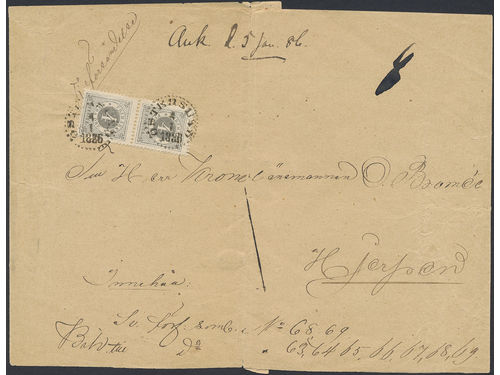 Ank d. 5 Jan. 86.
ÖSTERSUND
4
1
1886
ÖSTERSUND
4
1
1886
Herr Kronolänsmannen O. Bromée
Hjerpen
Innehåll:
Sv. Förf. saml. No 68, 69
Bih. do 63, 64, 65, 66, 67, 68, 69.